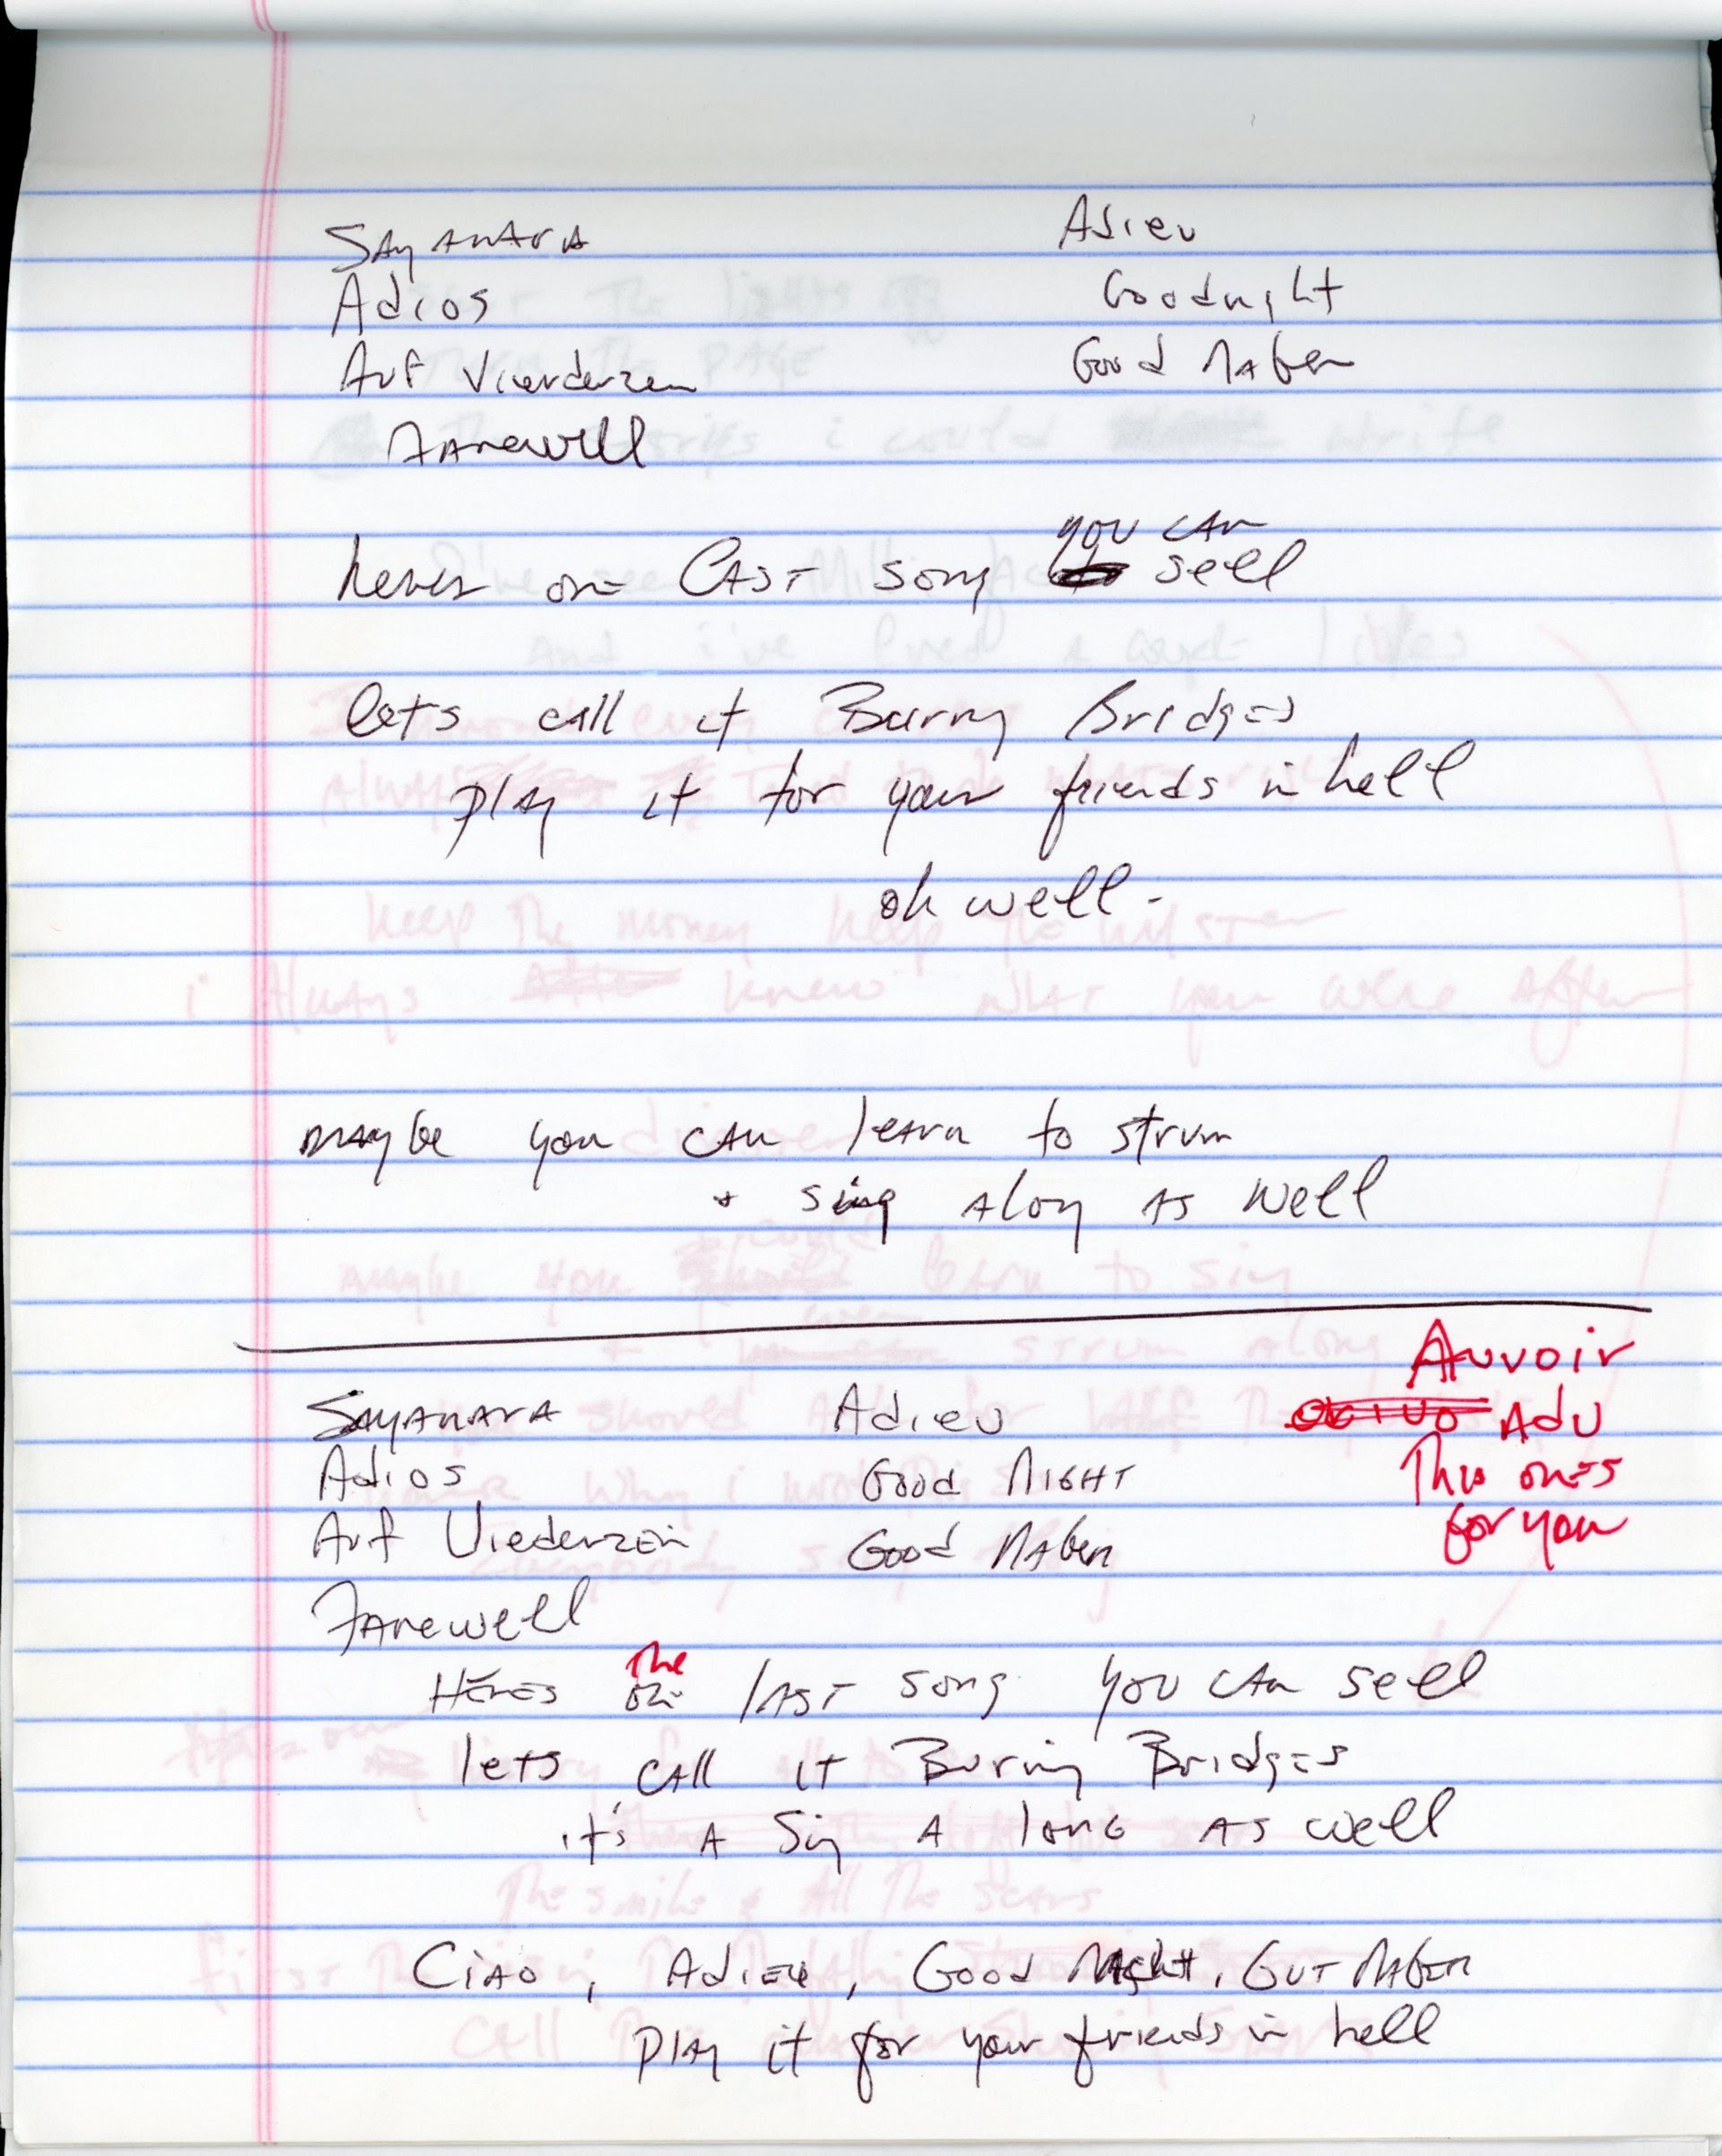 Sayanara Adieu
Adios Goodnight
Auf Vierderzen Good Naben
Farewell
you can
heres one last song sell
lets call it Burng Bridges
play it for your friends in hell
oh well -
maybe you can learn to strum
+ sing along as well
Auvoir
Sayanara Adieu Adu
Adios Good Night This ones
Auf Viederzein Good Naben for you
Farewell
The
Heres one last song you can sell
lets call it Buring Bridges
it's a Sing A long as well
Ciao, Adieu, Good Night, Gut Naben
play it for your friends in hell